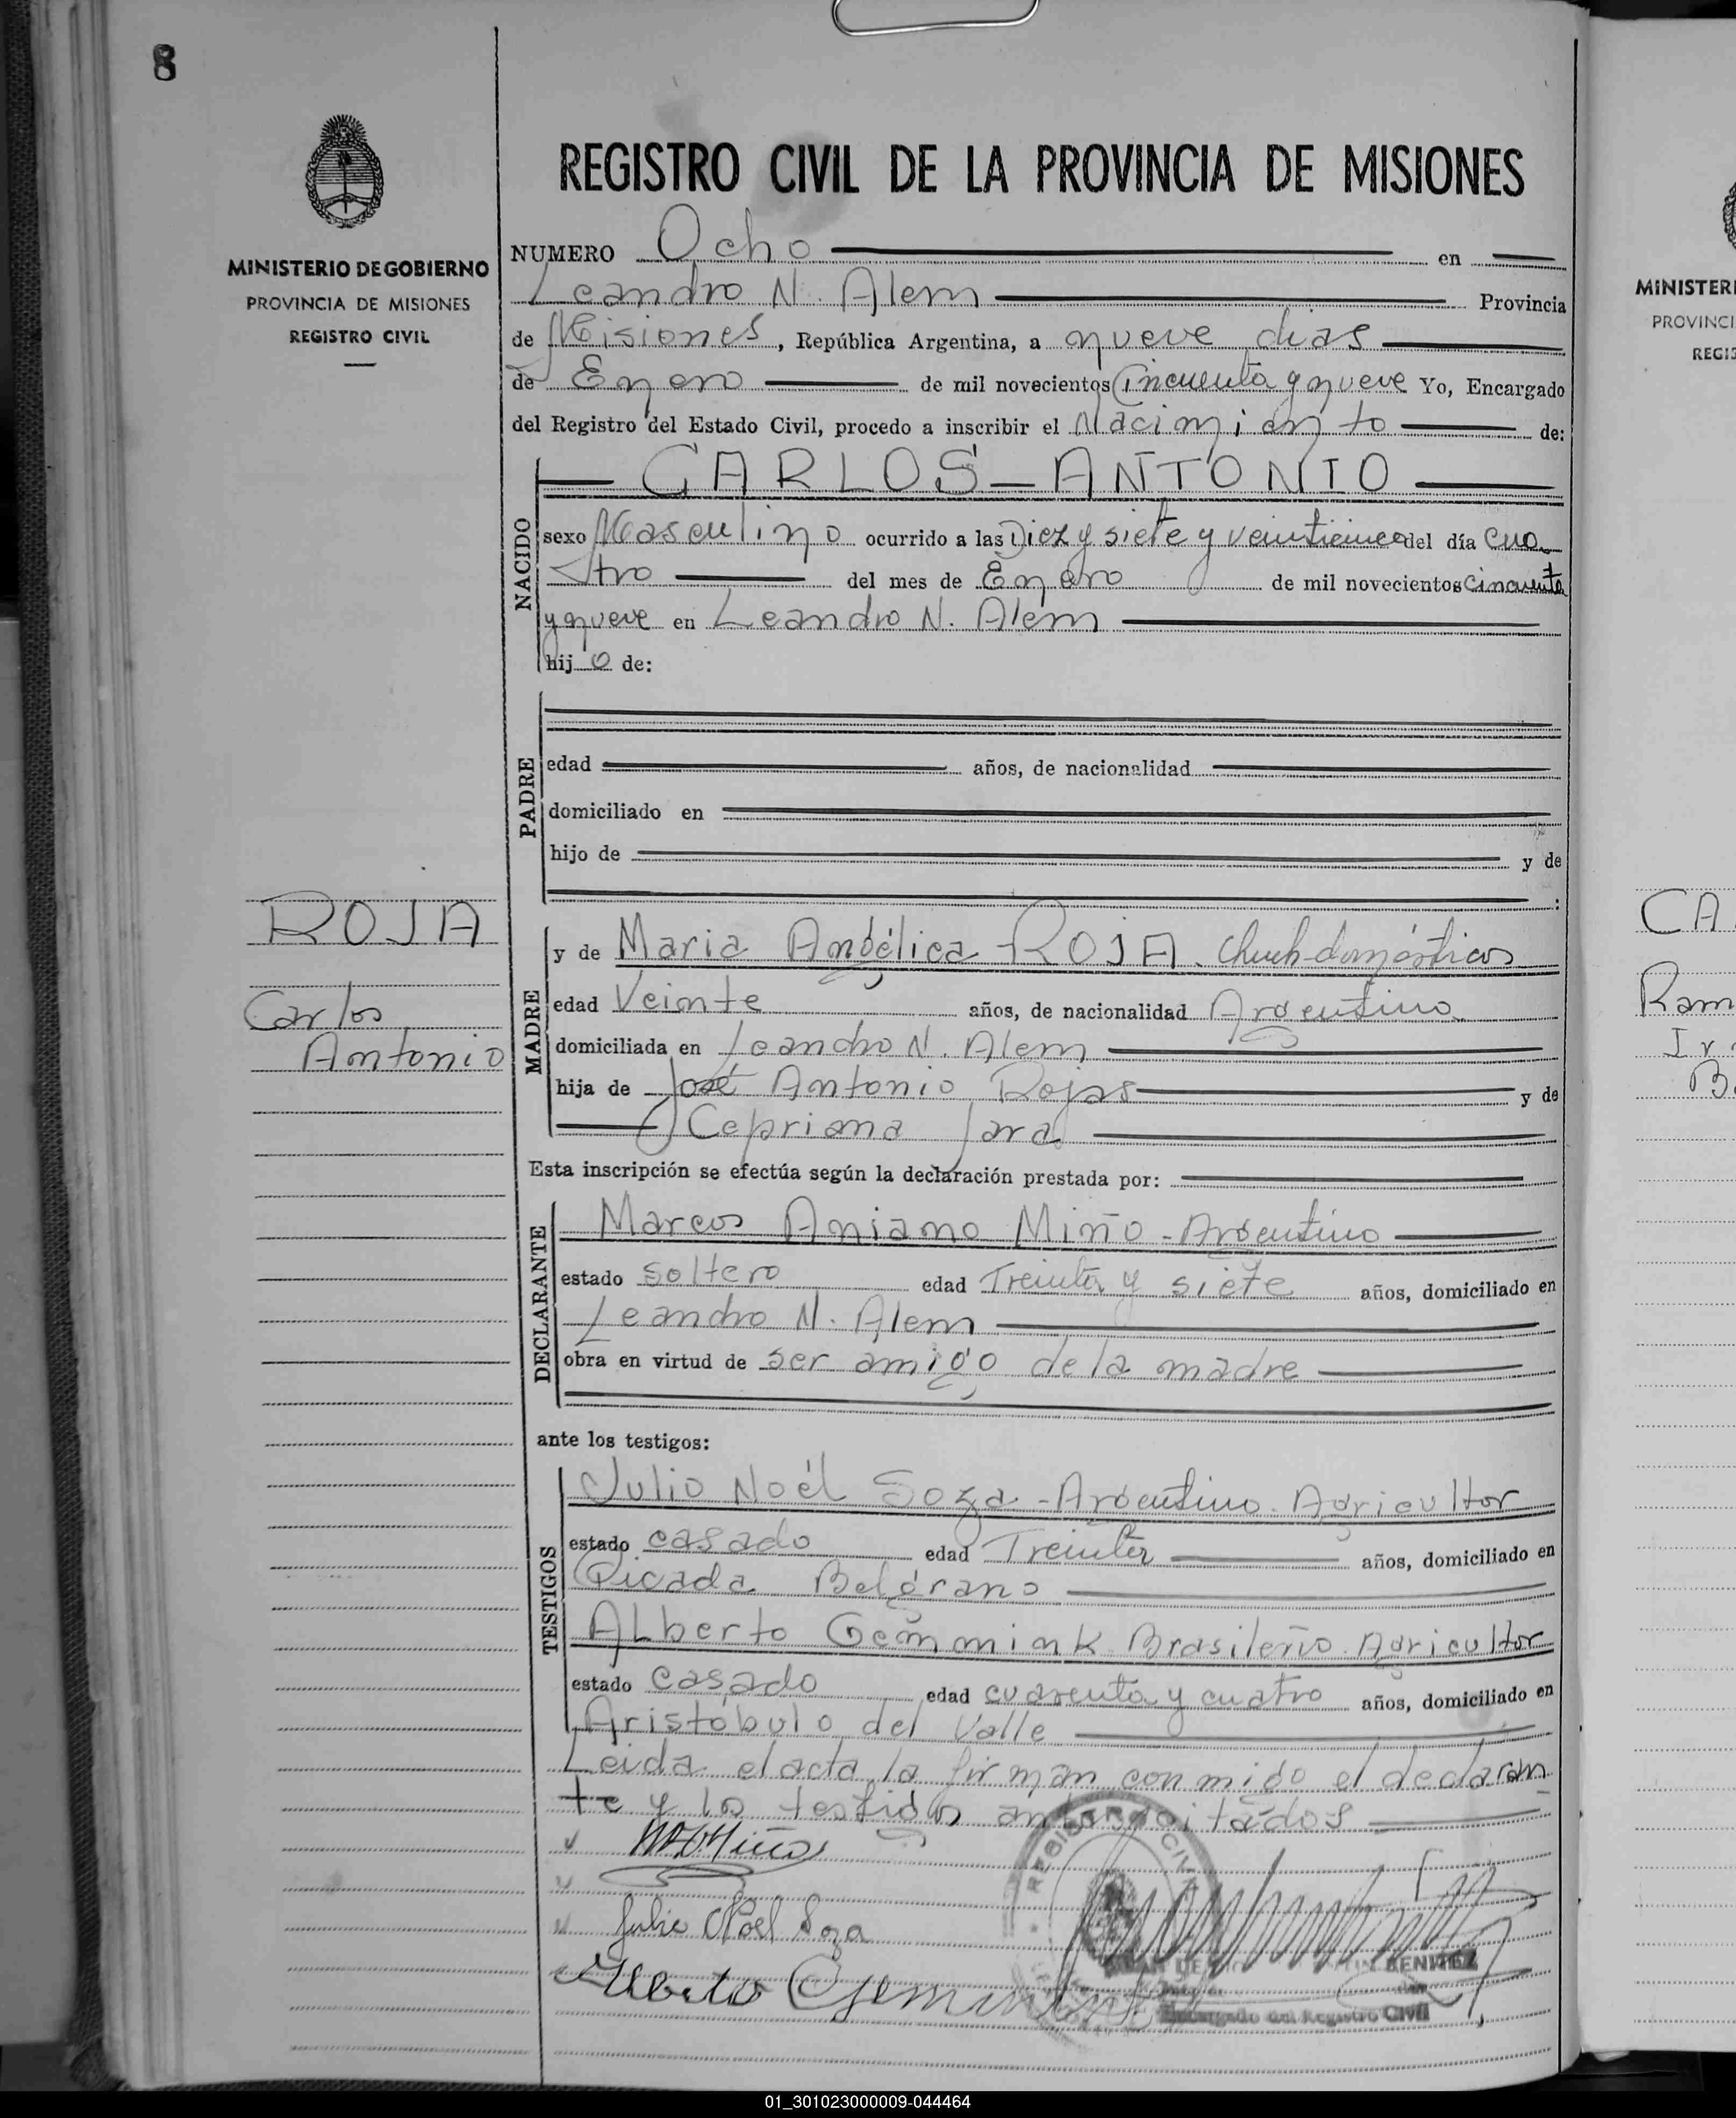 8
MINISTERIO DE GOBIERNO
PROVINCIA DE MISIONES
REGISTRO CIVIL
ROJA
Carlos
Antonio
REGISTRO CIVIL DE LA PROVINCIA DE MISIONES
NUMERO Ocho en
Leandro N. Alem Provincia
de Misiones, República Argentina, a nueve dias
de Enero de mil novecientos Cincuenta y nueve Yo, Encargado
del Registro del Estado Civil, procedo a inscribir el Nacimiento de:
CARLOS - ANTONIO
NACIDO
sexo Masculino ocurrido a las Diez y siete y veinticinco del día cua
tro del mes de Enero de mil novecientos cincuenta
y nueve en Leandro N. Alem
hijo de:
PADRE
edad años, de nacionalidad
domiciliado en
hijo de y de
:
MADRE
y de Maria Angélica ROJA. domésticos
edad Veinte años, de nacionalidad Argentina
domiciliada en Leandro N. Alem
hija de José Antonio Rojas y de
Cepriana Jara
Esta inscripción se efectúa según la declaración prestada por:
DECLARANTE
Marcos Aniano Miño - Argentino
estado soltero edad Treinta y siete años, domiciliado en
Leandro N. Alem
obra en virtud de ser amigo de la madre
ante los testigos:
TESTIGOS
Julio Noél Soza - Argentino. Agricultor
estado casado edad Treinta años, domiciliado en
Picada Belgrano
Alberto Gemmink Brasileño. Agricultor
estado casado edad cuarenta y cuatro años, domiciliado en
Aristóbulo del Valle
Leida el acta la firman conmigo el declaran
te y los testigos antes citados
Miño
Julio Noel Soza
Alberto Gemmink
REGISTRO CIVIL
BENITEZ
Encargado del Registro Civil
MINISTER
PROVINCI
REGIS
CA
Ram
01_301023000009-044464